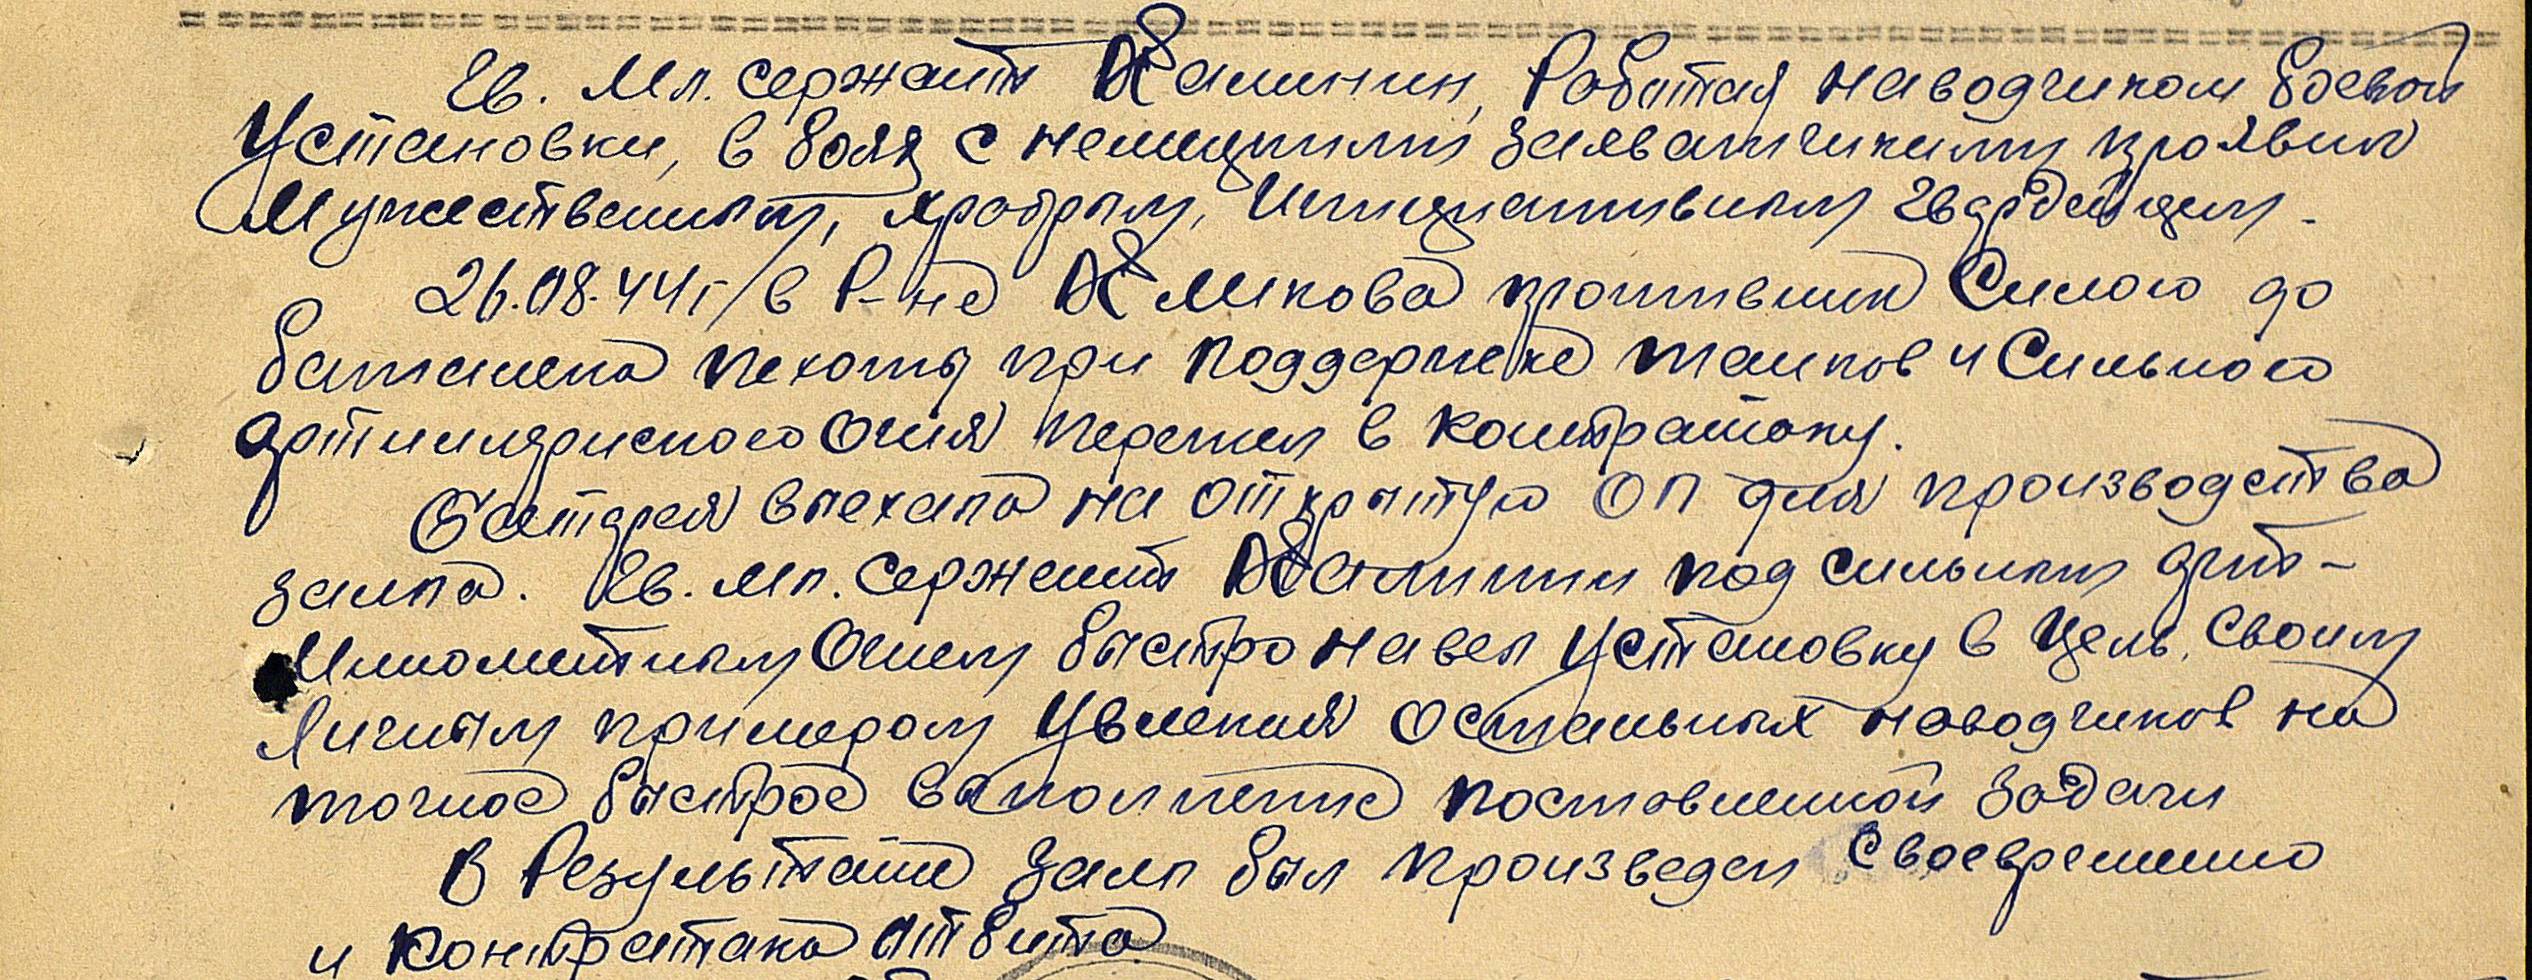 Гв. Мл. сержант Жаминин, Работая наводчиком боевой
Установки, в боях с немецкими захватчиками проявил
Мужественным, храбрым, Инициативным гвардейцем.
26.08.44 г в Р-не Жмкова противник Силою до
баталиона пехоты при поддержке танков и Сильного
артиллериского Огня перешел в контратаку.
Батарея выехала на открытую ОП для производства
залпа. Гв. мл. Сержант под сильным арт-
Минометным Огнем быстро навел Установку в цель, своим
Личным примером Увлекая остальных наводчиков на
точное быстрое выполнение поставленной задачи
В Результате залп был произведен Своевременно
и контратака отбита